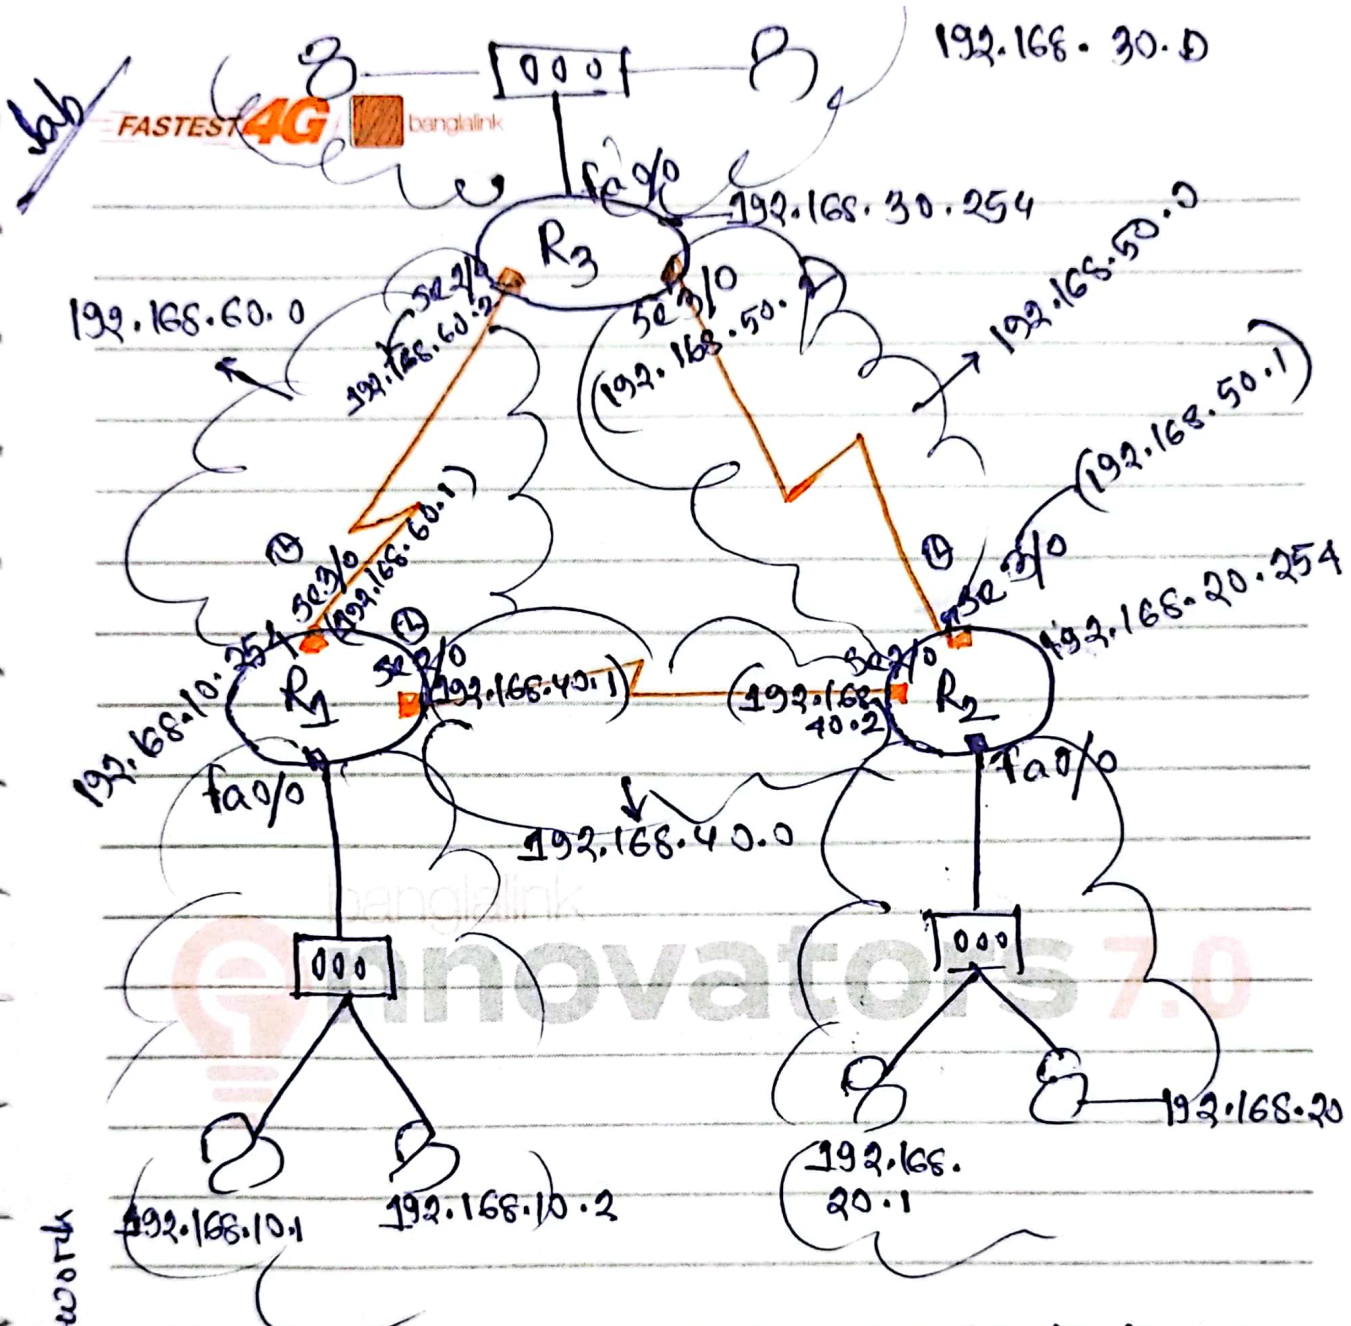 192.168.30.0
Lab
FASTEST 4G banglalink
fa0/0
192.168.30.254
R3
se2/0
192.168.60.2
se3/0
(192.168.50.
192.168.60.0
192.168.50.0
(192.168.50.1)
se3/0
(192.168.60.1)
se3/0
192.168.20.254
192.168.10.254
R1
se2/0
(192.168.40.1)
se2/0
(192.168.
40.2
R2
fa0/0
fa0/0
192.168.40.0
banglalink
innovators 7.0
192.168.20
192.168.
20.1
192.168.10.1
192.168.10.2
work